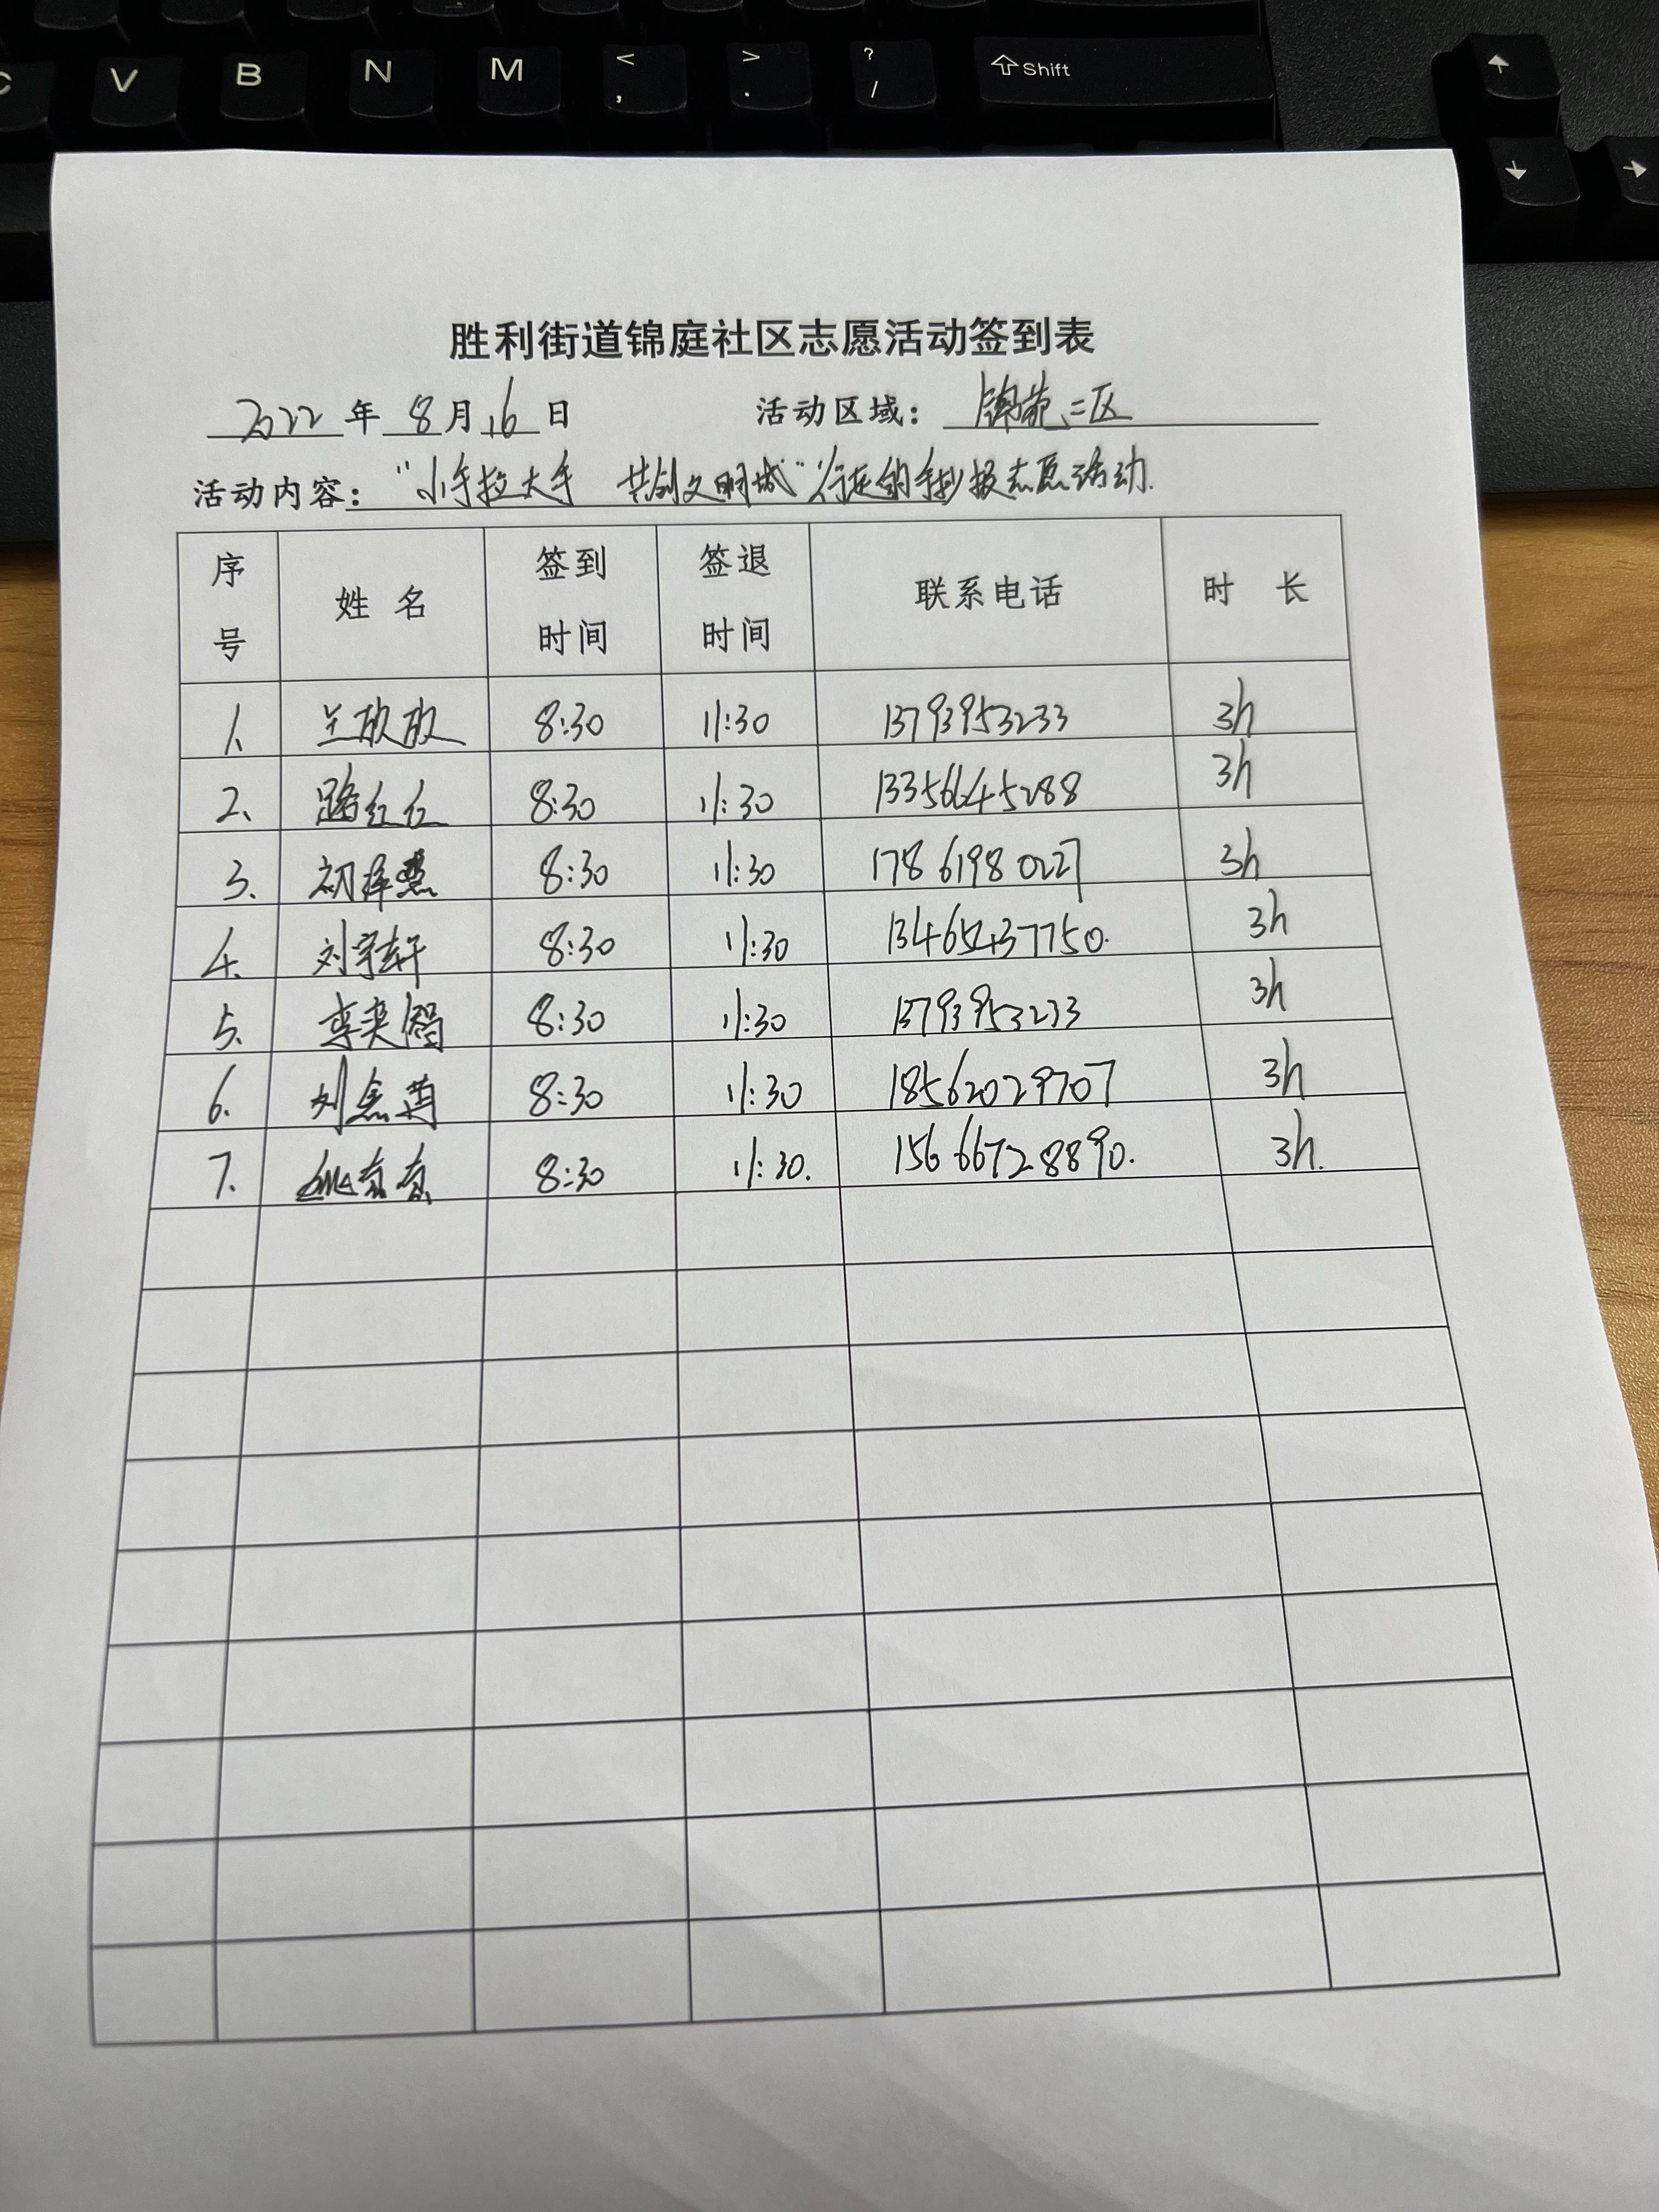 C V B N M < , > . ? / Shift
胜利街道锦庭社区志愿活动签到表
2022 年 8 月 16 日 活动区域: 锦苑二区
活动内容: "小手拉大手 共创文明城" 手抄报志愿活动.
序号 姓名 签到时间 签退时间 联系电话 时长
1. 8:30 11:30 13793953233 3h
2. 路红红 8:30 11:30 13356645288 3h
3. 初泽 8:30 11:30 17861980227 3h
4. 刘宇轩 8:30 11:30 13465437750. 3h
5. 李奕 8:30 11:30 13793953233 3h
6. 刘 8:30 11:30 18562029707 3h
7. 8:30 11:30. 15666728890. 3h.